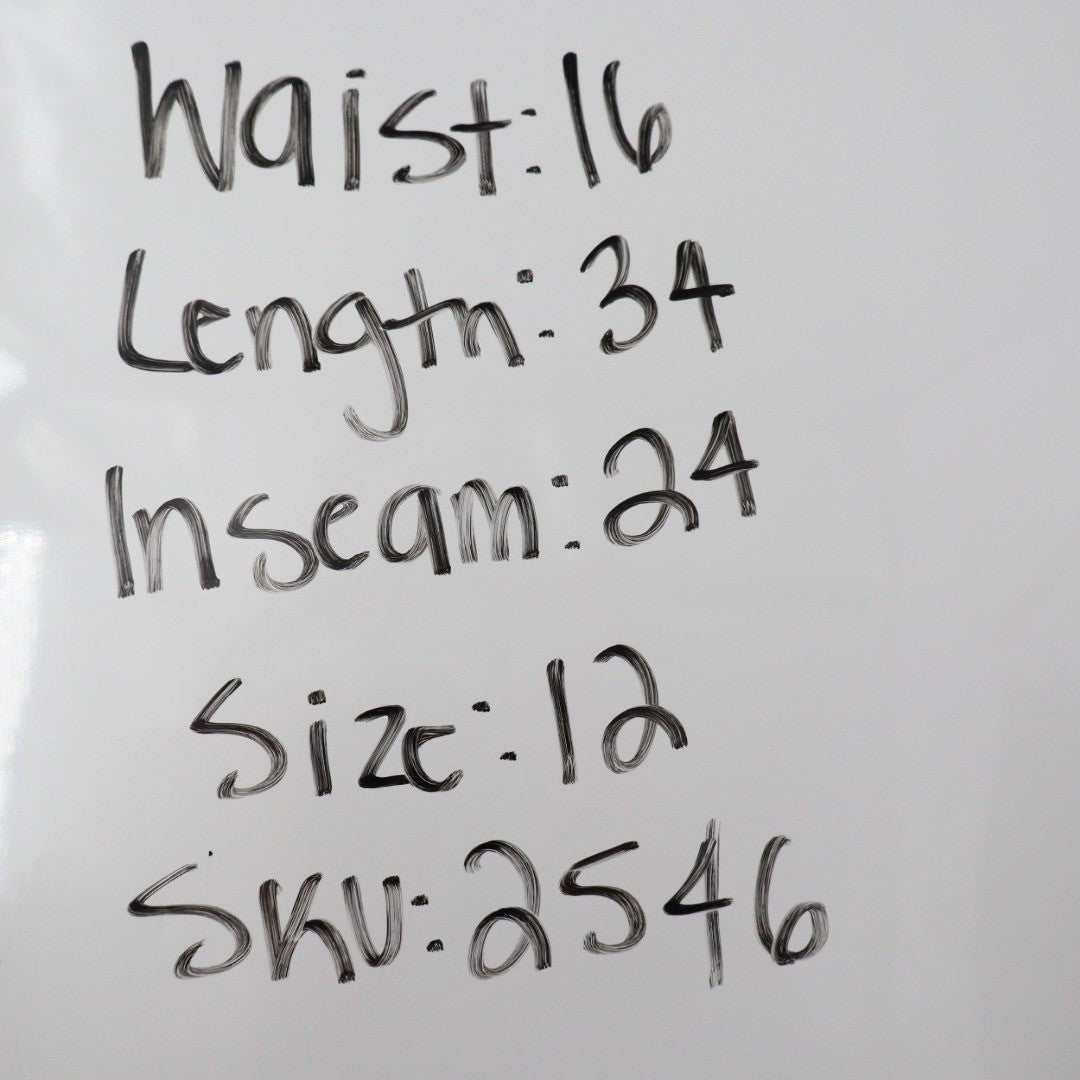 Waist: 16
Length: 34
Inseam: 24
Size: 12
SKU: 2546